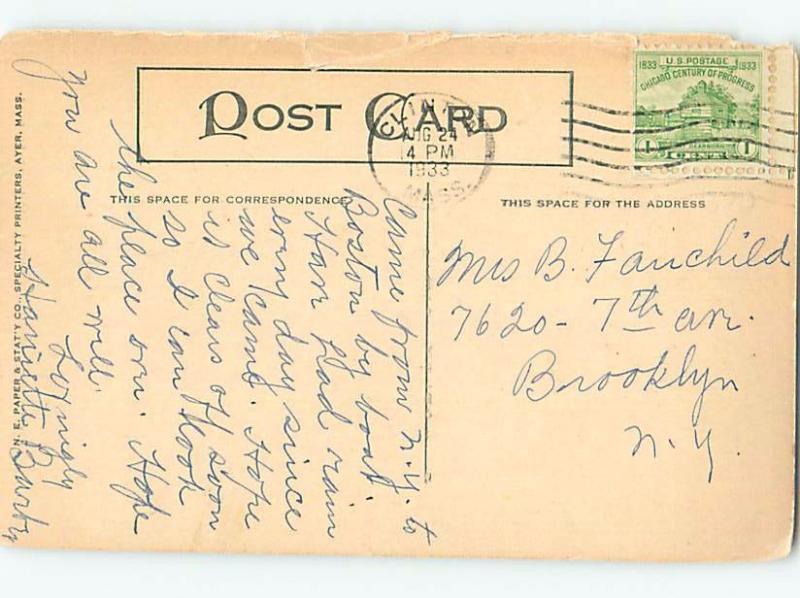 POST CARD
CLINTON
AUG 24
4 PM
1933
MASS.
1833 U.S. POSTAGE 1933
CHICAGO CENTURY OF PROGRESS
1 CENT 1
THIS SPACE FOR CORRESPONDENCE
THIS SPACE FOR THE ADDRESS
Came from N.Y. to
Boston by boat
Have had rain
every day since
we came. Hope
it clears off soon
so I can look
the place over. Hope
you are all well.
Lovingly
Harriette
Mrs B. Fairchild
7620 - 7th ave.
Brooklyn
N.Y.
N. E. PAPER & STAT'Y CO., SPECIALTY PRINTERS, AYER, MASS.